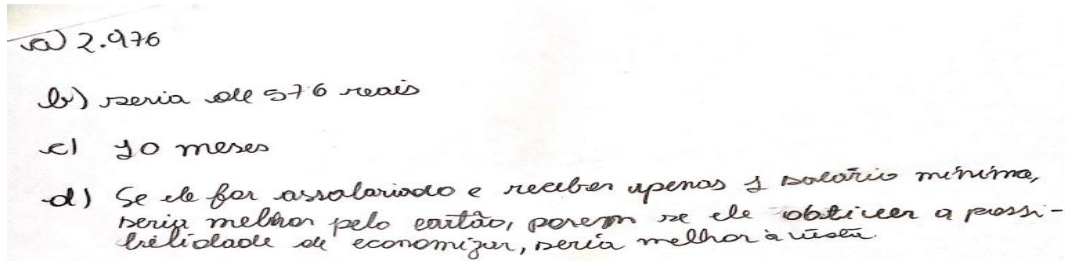 a) 2.976
b) seria de 576 reais
c) 10 meses
d) Se ele for assalariado e receber apenas 1 salário mínimo,
seria melhor pelo cartão, porem se ele obtiver a possi-
bilidade de economizar, seria melhor à vista